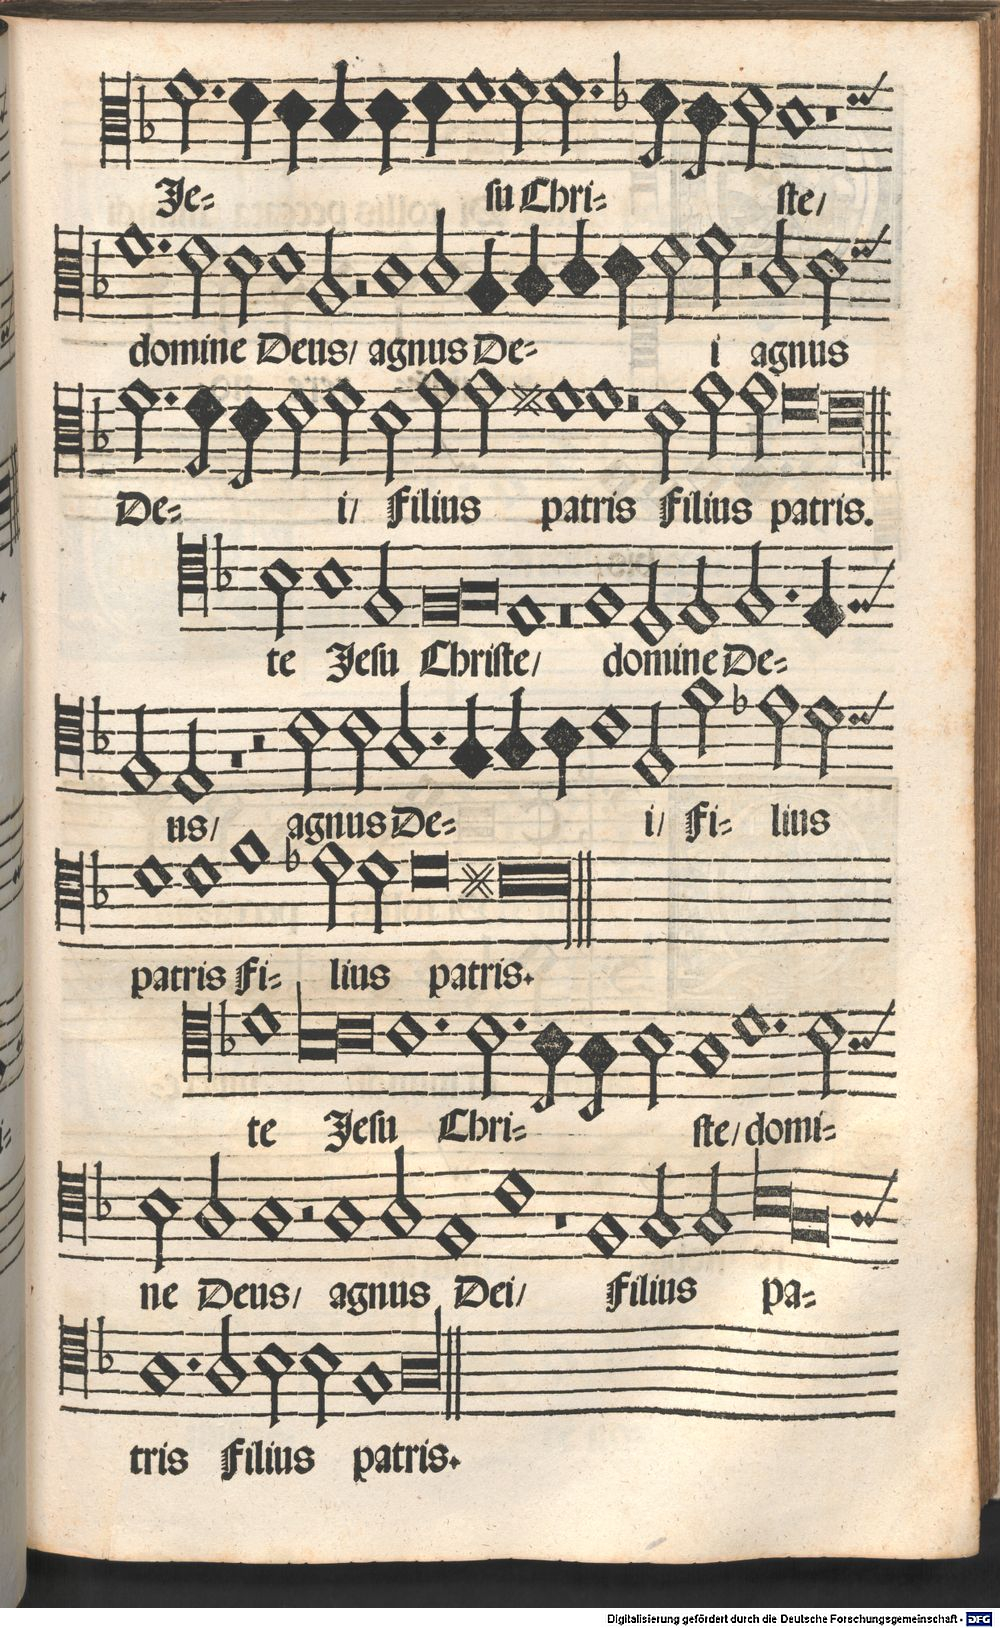 Je= su Chri= ste/
domine Deus/ agnus De= i agnus
De= i/ Filius patris Filius patris.
te Jesu Christe/ domine De=
us/ agnus De= i/ Fi= lius
patris Fi= lius patris.
te Jesu Chri= ste/ domi=
ne Deus/ agnus Dei/ Filius pa=
tris Filius patris.
Digitalisierung gefördert durch die Deutsche Forschungsgemeinschaft - DFG